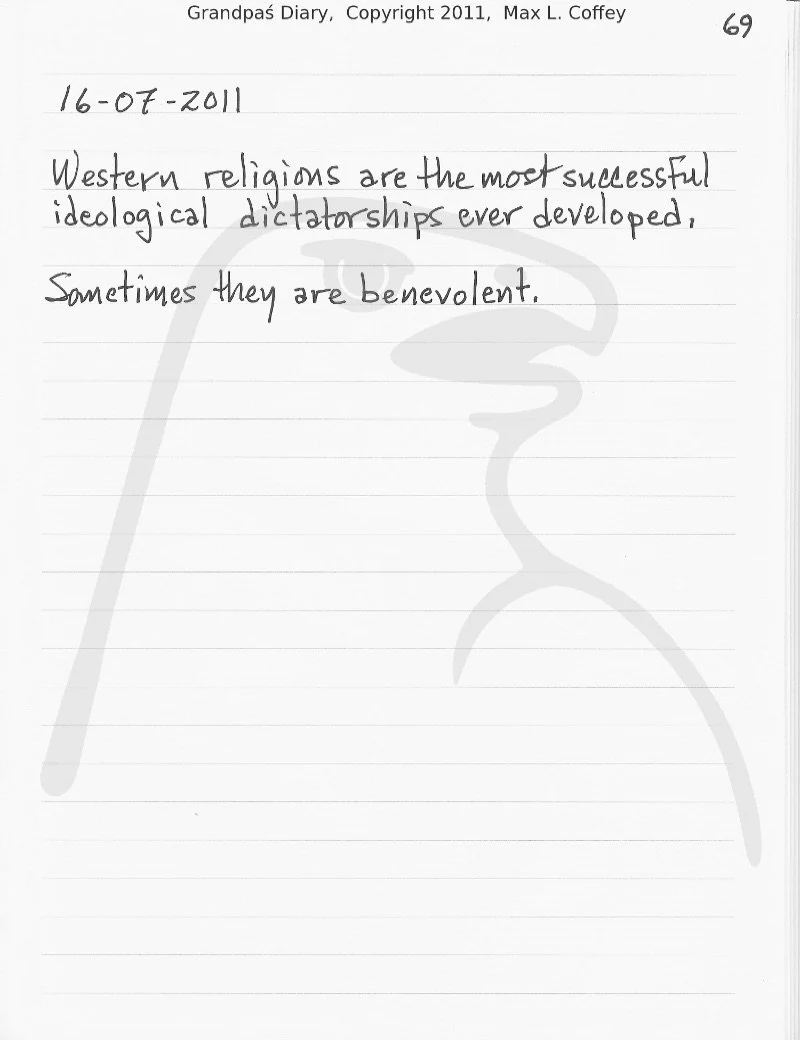 Grandpaś Diary, Copyright 2011, Max L. Coffey
69
16-07-2011
Western religions are the most successful
ideological dictatorships ever developed.
Sometimes they are benevolent.